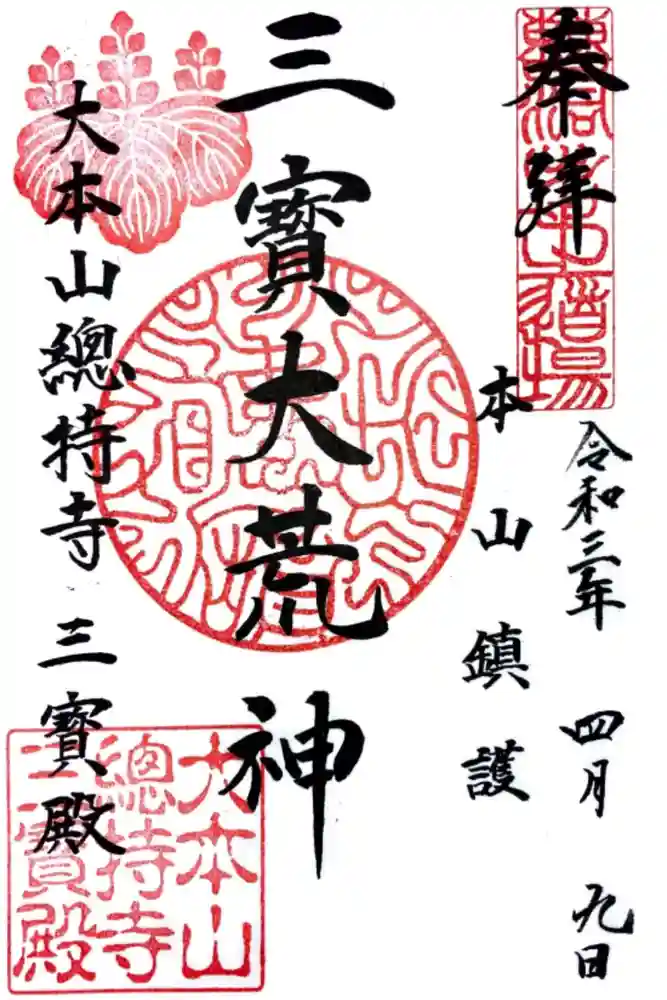 奉拜
令和三年 四月 九日
本山鎮護
三寳大荒神
大本山總持寺 三寳殿
大本山
總持寺
三寳殿